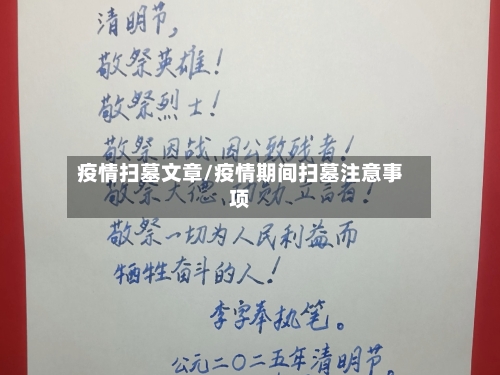 清明节,
敬祭英雄!
敬祭烈士!
敬祭因战、因公致残者!
疫情扫墓文章/疫情期间扫墓注意事
项
敬祭大德、功勋、立言者!
敬祭一切为人民利益而
牺牲奋斗的人!
李字奉执笔。
公元二〇二五年清明节。